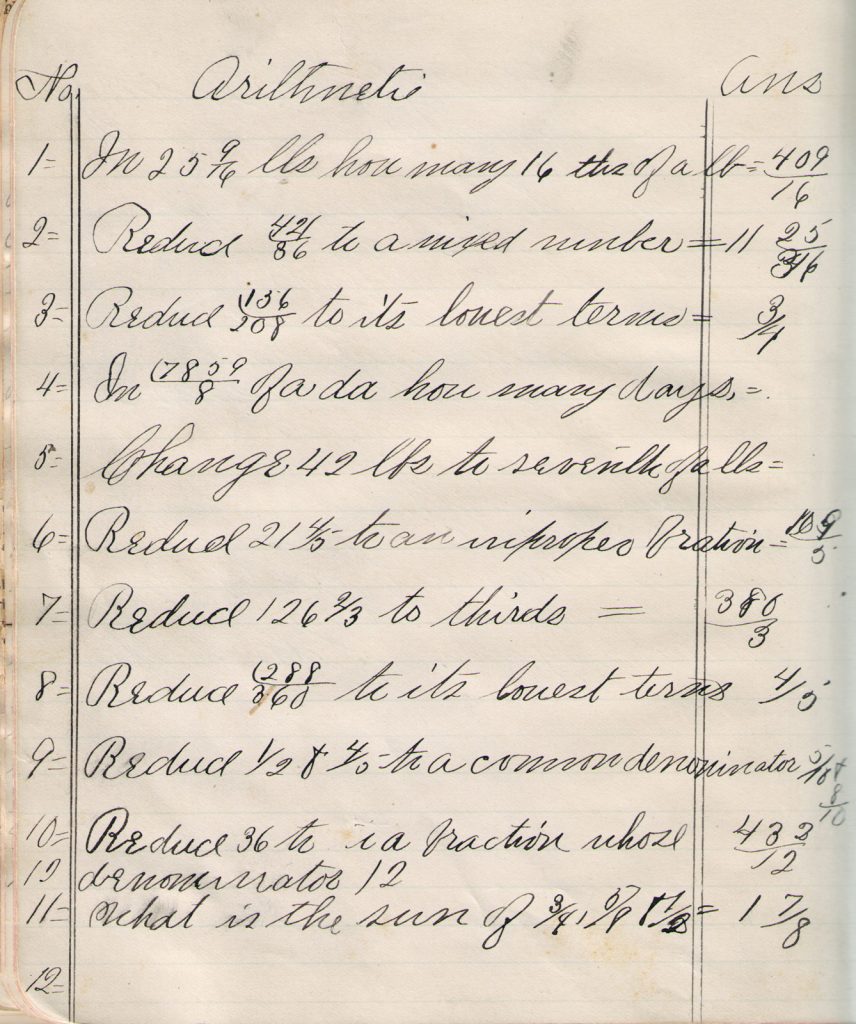 No. Arithmetic Ans
1= In 25 9/16 lbs how many 16 ths of a lb = 409/16
2= Reduce 421/36 to a mixed number = 11 25/36
3= Reduce 156/208 to its lowest terms = 3/4
4= In 7859/8 of a da how many days. =
5= Change 42 lbs to seventh of a lb =
6= Reduce 21 4/5 to an improper fration = 109/5
7= Reduce 126 2/3 to thirds = 380/3
8= Reduce 288/360 to its lowest terms 4/5
9= Reduce 1/2 & 4/5 to a common denominator 5/10 + 8/10
10= Reduce 36 to a fraction whose 432/12
12 denominator 12
11= What is the sum of 3/4, 5/8 & 1/2 = 1 7/8
12=